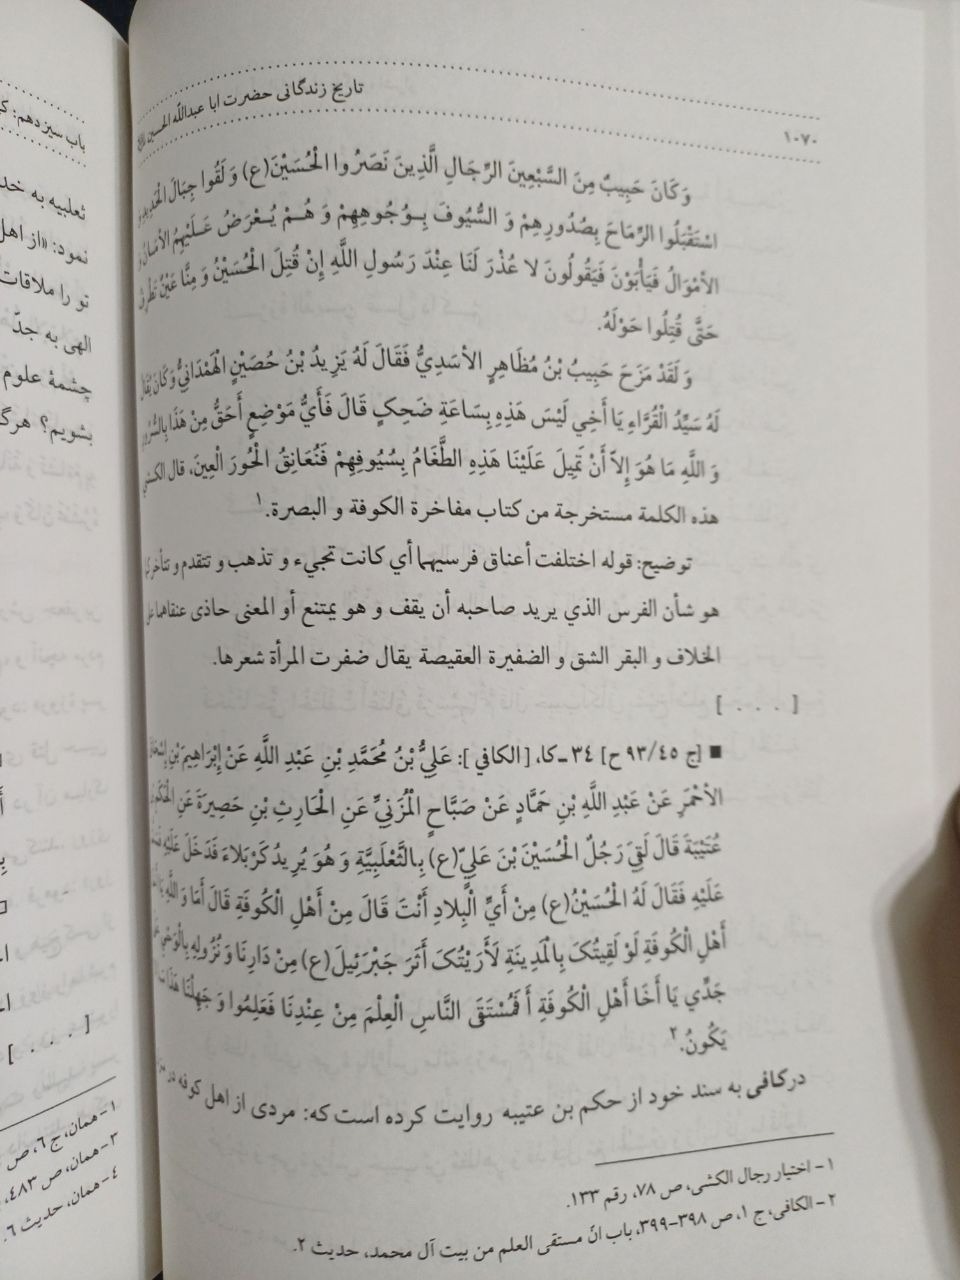 ۱۰۷۰
تاریخ زندگانی حضرت ابا عبدالله الحسین
وَ كَانَ حَبِيبٌ مِنَ السَّبْعِينَ الرِّجَالِ الَّذِينَ نَصَرُوا الْحُسَيْنَ(ع) وَ لَقُوا جِبَالَ الْحَدِيدِ وَ
اسْتَقْبَلُوا الرِّمَاحَ بِصُدُورِهِمْ وَ السُّيُوفَ بِوُجُوهِهِمْ وَ هُمْ يُعْرَضُ عَلَيْهِمُ الأَمَانُ وَ
الأَمْوَالُ فَيَأْبَوْنَ فَيَقُولُونَ لا عُذْرَ لَنَا عِنْدَ رَسُولِ اللَّهِ إِنْ قُتِلَ الْحُسَيْنُ وَ مِنَّا عَيْنٌ تَطْرِفُ
حَتَّى قُتِلُوا حَوْلَهُ.
وَ لَقَدْ مَزَحَ حَبِيبُ بْنُ مُظَاهِرٍ الأَسَدِيُّ فَقَالَ لَهُ يَزِيدُ بْنُ حُصَيْنٍ الْهَمْدَانِيُّ وَ كَانَ يُقَالُ
لَهُ سَيِّدُ الْقُرَّاءِ يَا أَخِي لَيْسَ هَذِهِ بِسَاعَةِ ضَحِكٍ قَالَ فَأَيُّ مَوْضِعٍ أَحَقُّ مِنْ هَذَا بِالسُّرُورِ
وَ اللَّهِ مَا هُوَ إِلاّ أَنْ تَمِيلَ عَلَيْنَا هَذِهِ الطَّغَامُ بِسُيُوفِهِمْ فَنُعَانِقُ الْحُورَ الْعِينَ، قال الكشي
هذه الكلمة مستخرجة من كتاب مفاخرة الكوفة و البصرة.۱
توضيح: قوله اختلفت أعناق فرسيهما أي كانت تجيء و تذهب و تتقدم و تتأخر كما
هو شأن الفرس الذي يريد صاحبه أن يقف و هو يمتنع أو المعنى حاذى عنقاهما على
الخلاف و البقر الشق و الضفيرة العقيصة يقال ضفرت المرأة شعرها.
[ . . . ]
■ [ج ۹۳/۴۵ ح] ۳۴ ـ كا، [الكافي]: عَلِيُّ بْنُ مُحَمَّدِ بْنِ عَبْدِ اللَّهِ عَنْ إِبْرَاهِيمَ بْنِ إِسْحَاقَ
الأَحْمَرِ عَنْ عَبْدِ اللَّهِ بْنِ حَمَّادٍ عَنْ صَبَّاحٍ الْمُزَنِيِّ عَنِ الْحَارِثِ بْنِ حَصِيرَةَ عَنِ الْحَكَمِ بْنِ
عُتَيْبَةَ قَالَ لَقِيَ رَجُلٌ الْحُسَيْنَ بْنَ عَلِيٍّ(ع) بِالثَّعْلَبِيَّةِ وَ هُوَ يُرِيدُ كَرْبَلاءَ فَدَخَلَ عَلَيْهِ فَسَلَّمَ
عَلَيْهِ فَقَالَ لَهُ الْحُسَيْنُ(ع) مِنْ أَيِّ الْبِلادِ أَنْتَ قَالَ مِنْ أَهْلِ الْكُوفَةِ قَالَ أَمَا وَ اللَّهِ يَا أَخَا
أَهْلِ الْكُوفَةِ لَوْ لَقِيتُكَ بِالْمَدِينَةِ لَأَرَيْتُكَ أَثَرَ جَبْرَئِيلَ(ع) مِنْ دَارِنَا وَ نُزُولِهِ بِالْوَحْيِ
جَدِّي يَا أَخَا أَهْلِ الْكُوفَةِ أَ فَمُسْتَقَى النَّاسِ الْعِلْمَ مِنْ عِنْدِنَا فَعَلِمُوا وَ جَهِلْنَا هَذَا
يَكُونُ.۲
درکافی به سند خود از حکم بن عتیبه روایت کرده است که: مردی از اهل کوفه در
۱- اختیار رجال الکشی، ص ۷۸، رقم ۱۳۳.
۲- الکافی، ج ۱، ص ۳۹۸-۳۹۹، باب انّ مستقی العلم من بیت آل محمد، حدیث ۲.
باب سیزدهم:
ثعلبیه به
نمود: «از اهل
تو را ملاقات
الهی به جدّ
چشمهٔ علوم
بشویم؟
[ . . . ]
۱- همان، ج ۶، ص
۳- همان، ص ۴۸۳،
۴- همان، حدیث ۶.